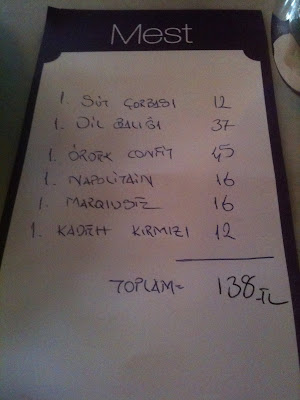 Mest
1. SÜT ÇORBASI 12
1. DİL BALIĞI 37
1. ÖRDEK CONFIT 45
1. NAPOLİTAİN 16
1. MARQUISE 16
1. KADEH KIRMIZI 12
TOPLAM= 138 TL